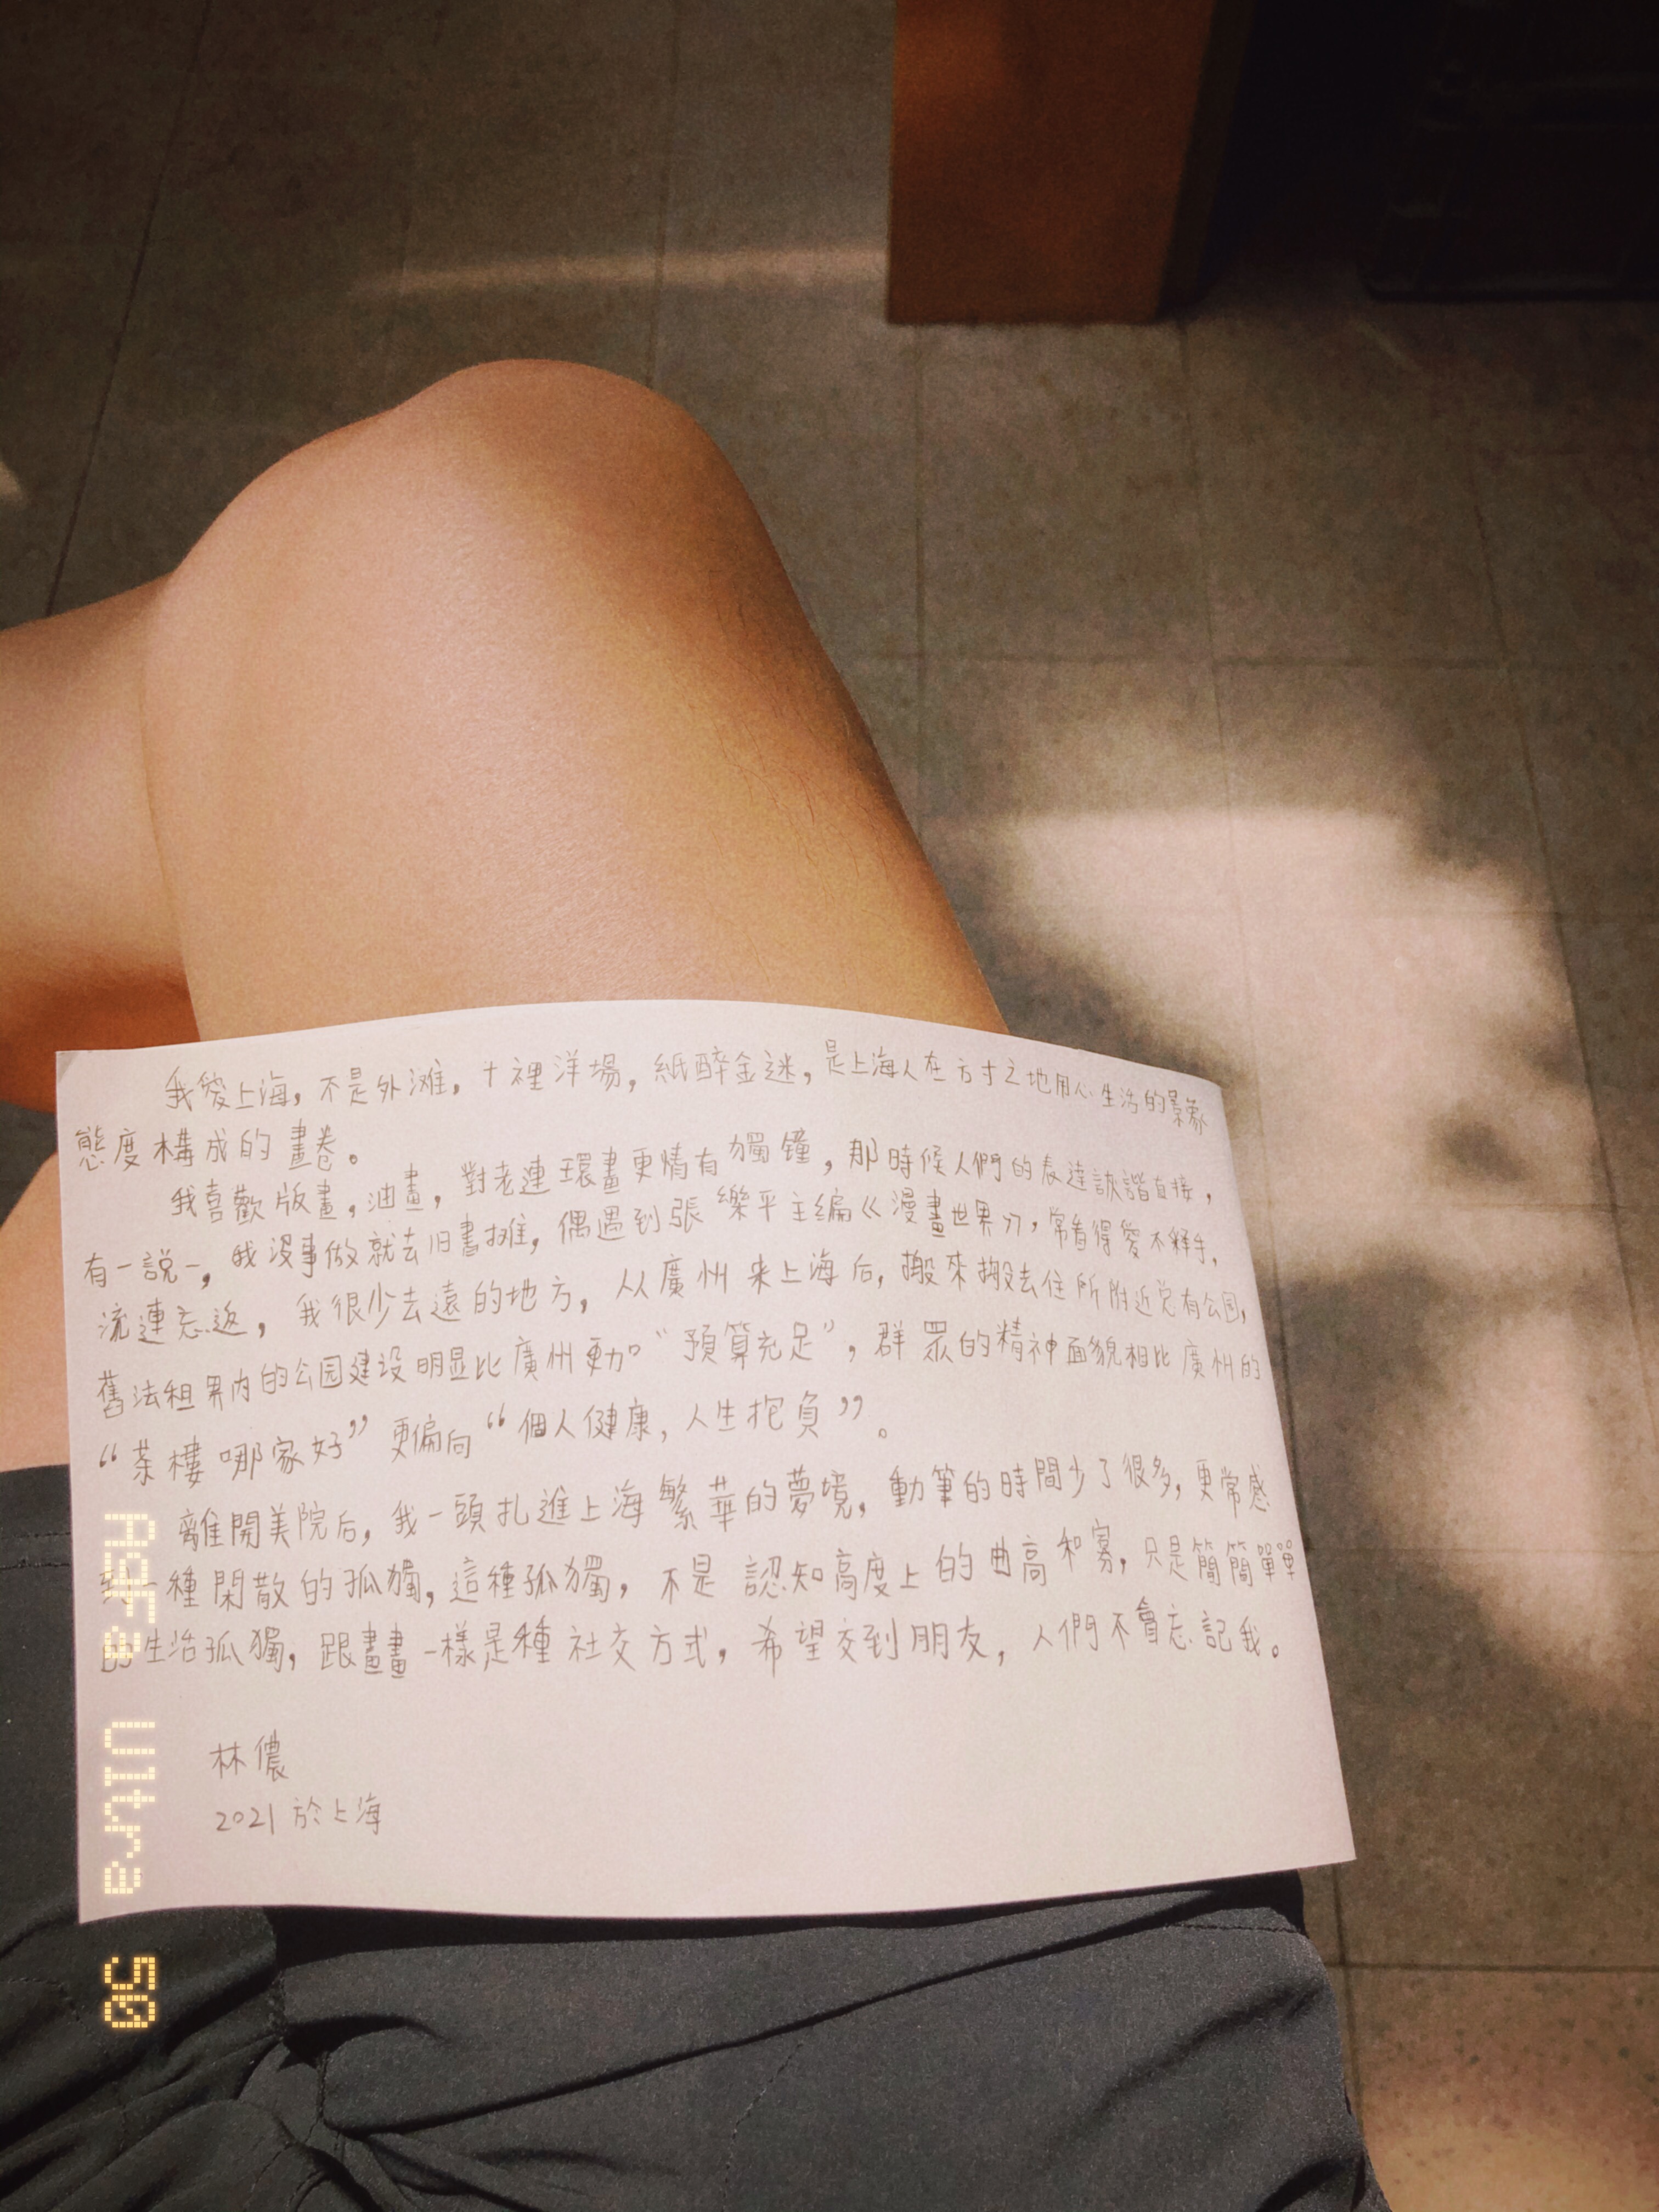 我愛上海，不是外滩，十裡洋場，紙醉金迷，是上海人在方寸之地用心生活的景象
態度構成的畫卷。
我喜歡版畫，油畫，對老連環畫更情有獨鐘，那時候人們的表達詼諧直接，
有一說一，我沒事做就去旧書摊，偶遇到張樂平主編《漫畫世界》，常看得愛不釋手，
流連忘返，我很少去遠的地方，从廣州来上海后，搬來搬去住所附近总有公园，
舊法租界内的公园建设明显比廣州更加“預算充足”，群眾的精神面貌相比廣州的
“茶樓哪家好”更偏向“個人健康，人生抱負”。
離開美院后，我一頭扎進上海繁華的夢境，動筆的時間少了很多，更常感
到一種閑散的孤獨，這種孤獨，不是認知高度上的曲高和寡，只是簡簡單單
的生活孤獨，跟畫畫一樣是種社交方式，希望交到朋友，人們不會忘記我。
林儂
2021 於上海
Agfa Ultra 50